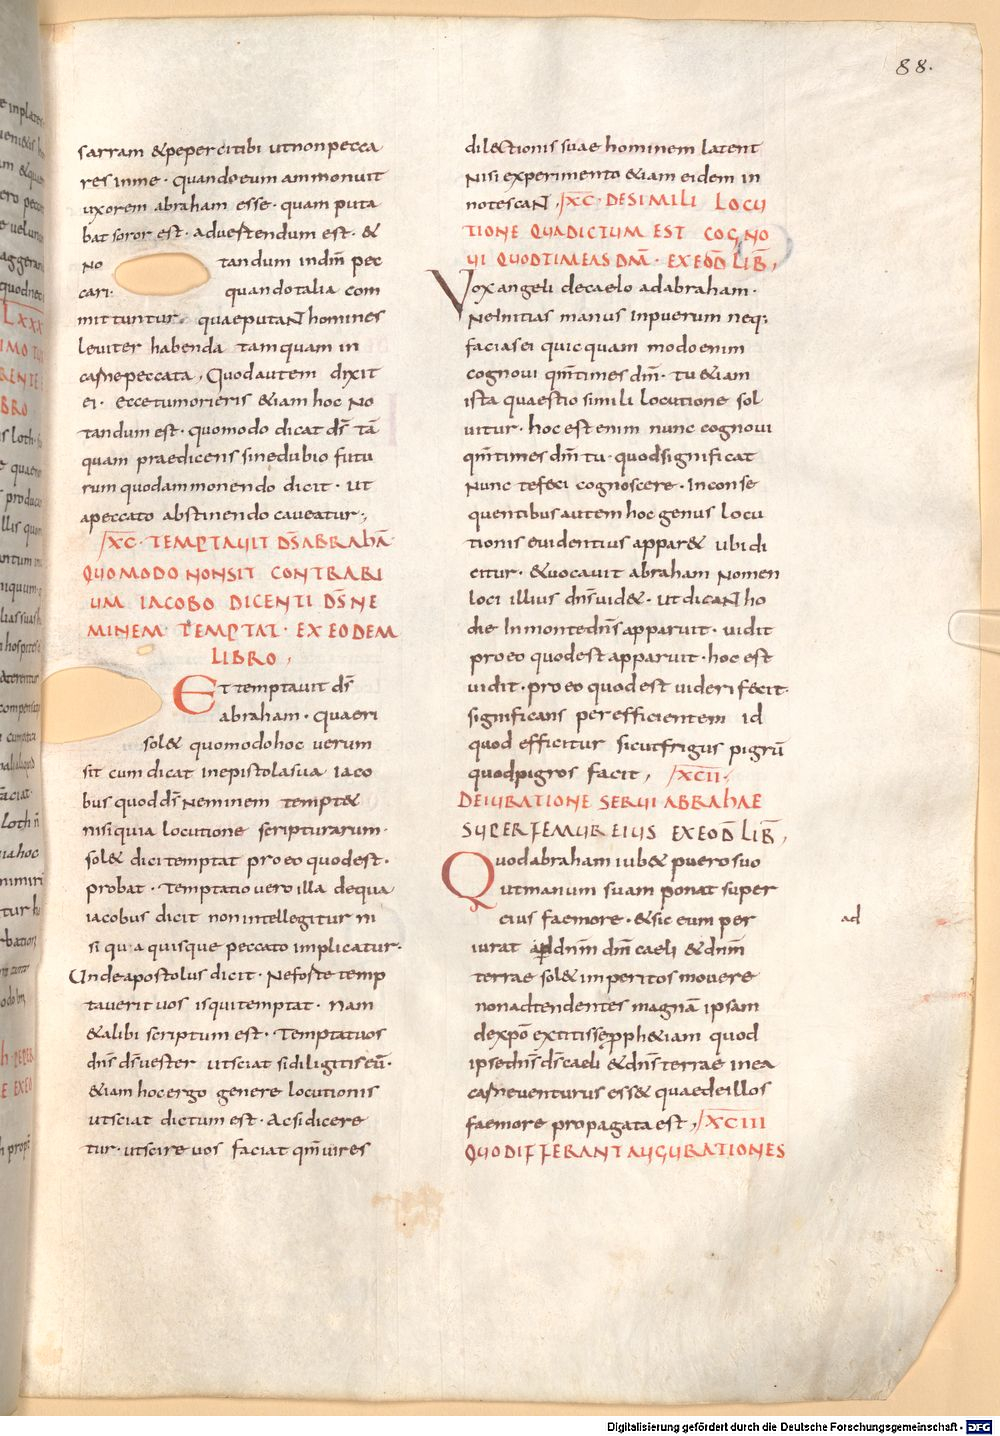 88.
sarram &peperci tibi ut non pecca
res in me · quando eum ammonuit
uxorem abraham esse · quam puta
bat soror est · aduertendum est · &
no tandum in dm̄ pec
cari · quando talia com
mittuntur · quae putant homines
leuiter habenda tamquam in
carne peccata, Quod autem dixit
ei · ecce tu morieris &iam hoc no
tandum est · quomodo dicat ds̄ tā
quam praedicens sine dubio futu
rum quod ammonendo dicit · ut
a peccato abstinendo caueatur;
XC · TEMPTAUIT DS̄ ABRAHĀ
QUOMODO NON SIT CONTRARI
UM IACOBO DICENTI DS̄ NE
MINEM TEMPTAT · EX EODEM
LIBRO,
Et temptauit ds̄
abraham · quaeri
sol& quomodo hoc uerum
sit cum dicat in epistola sua iaco
bus quod ds̄ neminem tempt&
nisi quia locutione scripturarum ·
sol& dici temptat pro eo quod est ·
probat · Temptatio uero illa de qua
iacobus dicit non intellegitur ni
si qua quisque peccato implicatur ·
Unde apostolus dicit · Ne forte temp
tauerit uos is qui temptat · nam
&alibi scriptum est · Temptat uos
dns̄ ds̄ uester ut sciat si diligitis eū ·
&iam hoc ergo genere locutionis
ut sciat dictum est · Ac si dicere
tur · ut scire uos faciat qm̄ uires
dilectionis suae hominem latent
Nisi experimento &iam eidem in
notescant, XC · DE SIMILI LOCU
TIONE QUA DICTUM EST COGNO
UI QUOD TIMEAS DM̄ · EX EOD̄ LIB̄,
Vox angeli de caelo ad abraham ·
Ne Initias manus in puerum neq;
facias ei quicquam modo enim
cognoui qm̄ times dm̄ · tu &iam
ista quaestio simili locutione sol
uitur · hoc est enim nunc cognoui
qm̄ times dm̄ tu · quod significat
Nunc te feci cognoscere · In conse
quentibus autem hoc genus locu
tionis euidentius appar& ubi di
citur · &uocauit abraham nomen
loci illius dns̄ uid& · ut dicant ho
die In monte dns̄ apparuit · uidit
pro eo quod est apparuit · hoc est
uidit · pro eo quod est uideri fecit ·
significans per efficientem id
quod efficitur sicut frigus pigrū
quod pigros facit, XCII ·
DE IURATIONE SERUI ABRAHAE
SUPER FEMUR EIUS EX EOD̄ LIB̄,
Quod abraham iub& puero suo
ut manum suam ponat super
eius faemore · &sic eum per
ad
iurat ad dnm̄ dm̄ caeli & dnm̄
terrae sol& imperitos mouere
non adtendentes magnā ipsam
de xp̄o extitisse prph&iam quod
ipse dns̄ ds̄ caeli & dns̄ terrae in ea
carne uenturus ess& quae de illos
faemore propagata est, XCIII
QUO DIFFERANT AUGURATIONES
Digitalisierung gefördert durch die Deutsche Forschungsgemeinschaft - DFG